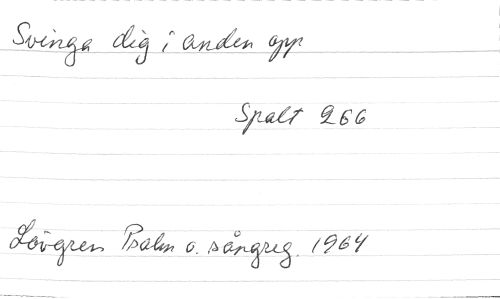 Svinga dig i anden opp
Spalt 266
Lövgren Psalm o. sångreg. 1964